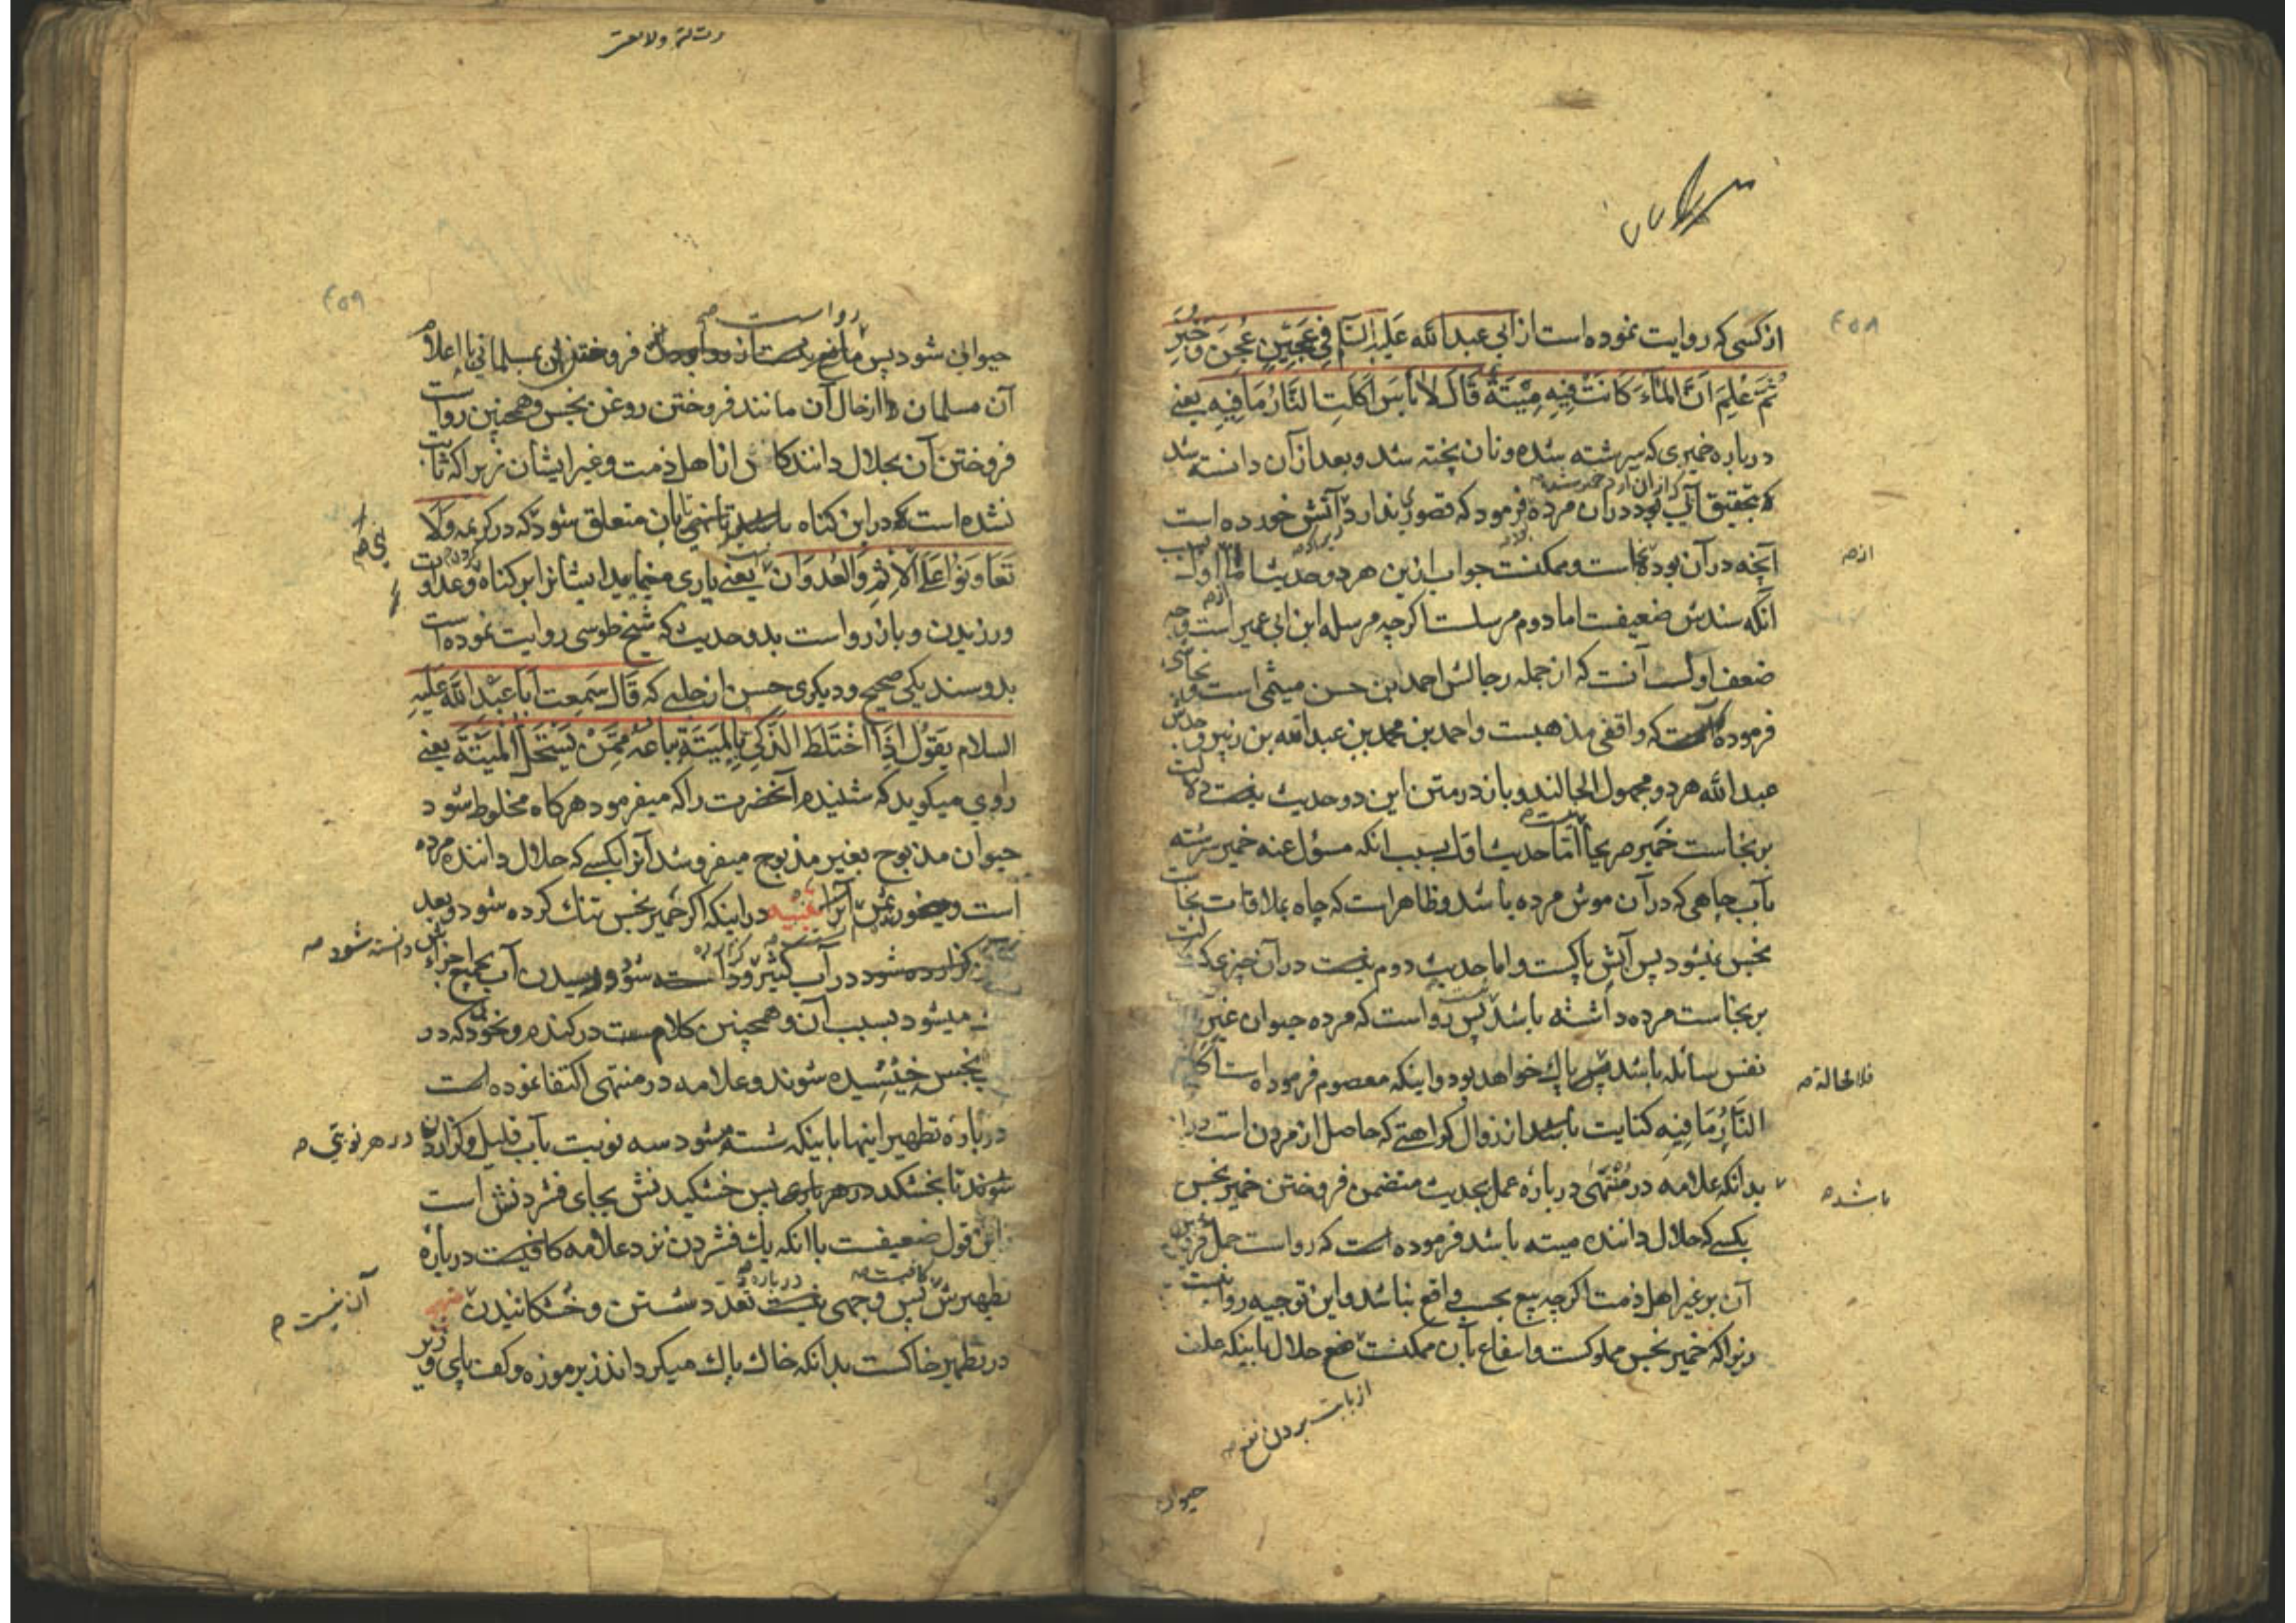 ۴۵۸
از کسی که روایت نموده است از ابی عبدالله علیه السلام فی عَجینٍ عُجِنَ وَ خُبِزَ
ثُمَّ عُلِمَ اَنَّ المآءَ کَانَتْ فِیهِ مِیْتَةٌ قَالَ لاٰ بَأسَ اَکَلَتِ النَّارُ مَا فِیهِ یعنی
درباره خمیری که سرشته شده و نان پخته شد و بعد از آن دانسته شد
که بتحقیق آبی که از آن آرد خمیر شده بود در آن مرده فرمود که قصوری ندارد آتش خورده است
آنچه در آن بوده است و ممکنست جواب ازین هر دو حدیث اما اول
از
آنکه سندش ضعیفست اما دوم مرسلست اگرچه مرسله ابن ابی عمیر است و وجه
ضعف اول آنست که از جمله رجالش احمد بن حسن میثمی است و نجاشی
فرموده که واقفی مذهبست و احمد بن محمد بن عبدالله بن زبیر و جدش
عبدالله هر دو مجهول الحالند و باز در متن این دو حدیث نیست دلالت
بر نجاست خمیر صریحاً اما حدیث اول بسبب آنکه مسؤل عنه خمیر سرشته
بآب چاهی که در آن موش مرده باشد و ظاهر است که چاه بملاقات نجاست
نجس نمیشود پس آبش پاکست و اما حدیث دوم نیست در آن چیزی که دلالت
بر نجاست مرده داشته باشد پس رواست که مرده حیوان غیر
نفس سائله باشد پس پاک خواهد بود و اینکه معصوم فرموده است اکلت
فلا محالة
النَّارُ مَا فِیهِ کنایت باشد از زوال کراهتی که حاصل از مردن است در آن
بدانکه علامه در مُنْتَهٰی درباره عمل بحدیث متضمن فروختن خمیر نجس
باشد
بکسی که حلال داننده میته باشد فرموده است که رواست حمل فروختن
آن بر غیر اهل ذمت اگرچه بیع بحسب واقع نباشد و این توجیه روا نیست
زیرا که خمیر نجس مملوکست و انتفاع بآن ممکنست نفع حلال باینکه علف
از بابت بردن نفع
حیوانی
رت لتم ولا تعتر
۴۵۹
رواست
حیوانی شود پس مانع فروختن آن بمسلمانی با اعلام
آن مسلمان را از حال آن مانند فروختن روغن نجس و همچنین رواست
فروختن آن بحلال دانندگان از اهل ذمت و غیر ایشان زیرا که ثابت
نشده است که در این گناه باشد تا نهی بآن متعلق شود که در کریمه وَلاٰ
تَعَاوَنُوا عَلَی الْاِثْمِ وَالْعُدْوَانِ یعنی یاری منمایید ایشانرا بر گناه و عداوت
ورزیدن و باز رواست بدو حدیث که شیخ طوسی روایت نموده است
بدو سند یکی صحیح و دیگری حسن از حلبی که قَالَ سَمِعتُ اَبَا عَبْدِ اللّٰهِ عَلَیْهِ
السلام یَقُولُ اِذَا اخْتَلَطَ الذَّکِیُّ بِالْمَیْتَةِ بٰاعَهُ مِمَّنْ یَسْتَحِلُّ الْمَیْتَةَ یعنی
راوی میگوید که شنیدم آنحضرت را که میفرمود هرگاه مخلوط شود
حیوان مذبوح بغیر مذبوح میفروشد آنرا بکسی که حلال داننده مرده
است و میخورد ثمن آنرا تنبیه در اینکه اگر خمیر نجس تنک کرده شود و بعد
گذارده شود در آب کثیر و دانسته شود رسیدن آب بجمیع اجزاء
دانسته شود
میشود بسبب آن و همچنین کلامست در گندم و نخود که در
نجس خیسیده شوند و علامه در منتهی اکتفا نموده است
درباره تطهیر اینها باینکه شسته شود سه نوبت بآب قلیل و گذارده
در هر نوبتی
شوند تا بخشکد در هر باری پس خشکیدنش بجای فشردنش است
این قول ضعیفست با آنکه یک فشردن نزد علامه کافیست درباره
تطهیرش پس وجهی نیست تعدد شستن و خشکانیدن
آن نیست
در تطهیر خاکست بدانکه خاک پاک میگرداند زیر موزه و کف پای و زیر